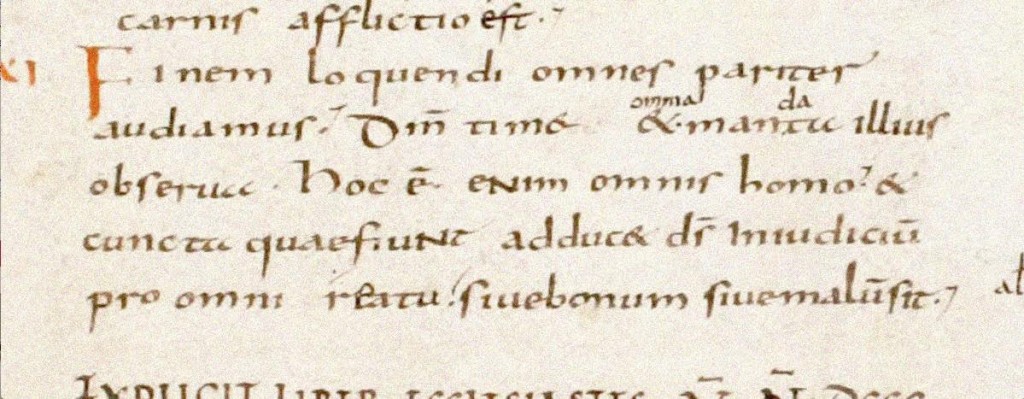 carnis afflictio est.
XI Finem loquendi omnes pariter
audiamus. Dm̄ tim& &·omnia mandata illius
observa. Hoc ē enim omnis homo. &
cuncta quae fiunt adduc& ds̄ In iudiciū
pro omni reatu. sive bonum sive malū sit.